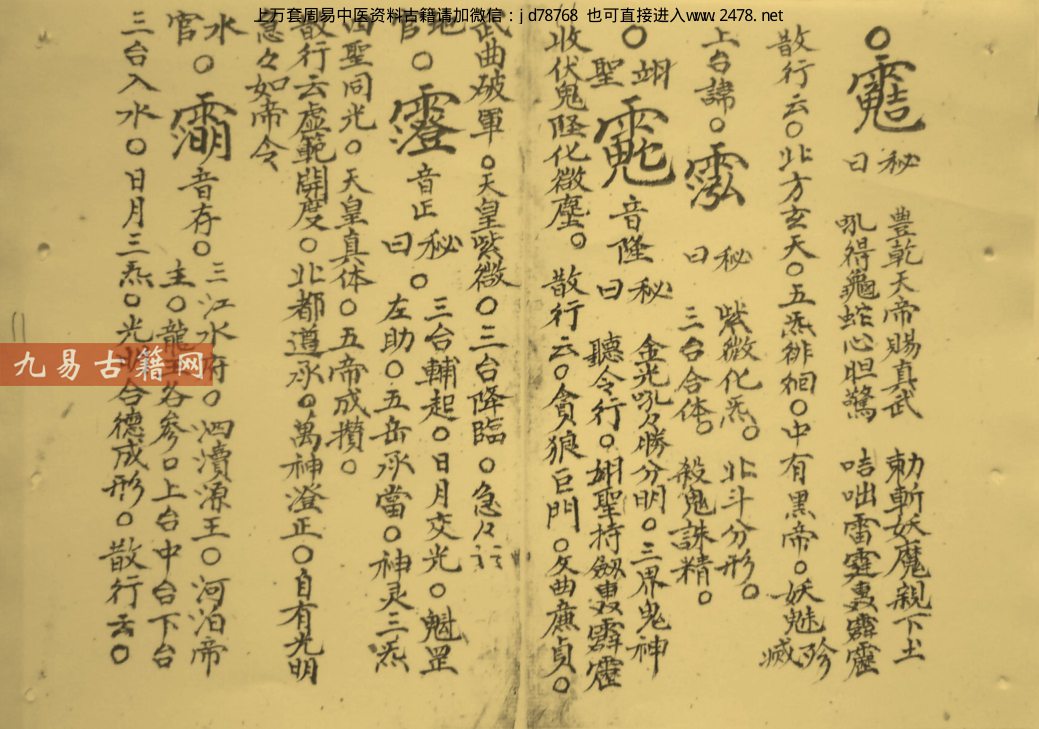 上万套周易中医资料古籍请加微信：jd78768 也可直接进入www.2478.net
秘曰
豊乾天帝賜真武 勅斬妖魔親下土
吼得龜蛇心胆驚 咭咄雷霆轟霹靂
散行云○北方玄天○五炁徘徊○中有黑帝○妖魅殄滅
上台諱○
秘曰
紫微化炁。北斗分形。
三台合体。殺鬼誅精。
○翊聖
音隆
秘曰
金光吼々勝分明。三界鬼神
聽令行。翊聖持劔轟霹靂
收伏鬼怪化微塵。散行云○貪狼巨門。文曲廉貞。
武曲破軍。天皇紫微○三台降臨。急々
地官○澄音正
秘曰○
三台輔起○日月交光。魁罡
左助○五岳承當○神灵三炁
四聖同光○天皇真体○五帝成攢○
散行云虚範開度○北都遵承○萬神澄正○自有光明
急々如帝令
水官○
音存○
三江水府○泗瀆源王○河泊帝
主○龍王各參○上台中台下台
三台入水○日月三炁○光 合德成形○散行云○
九易古籍网